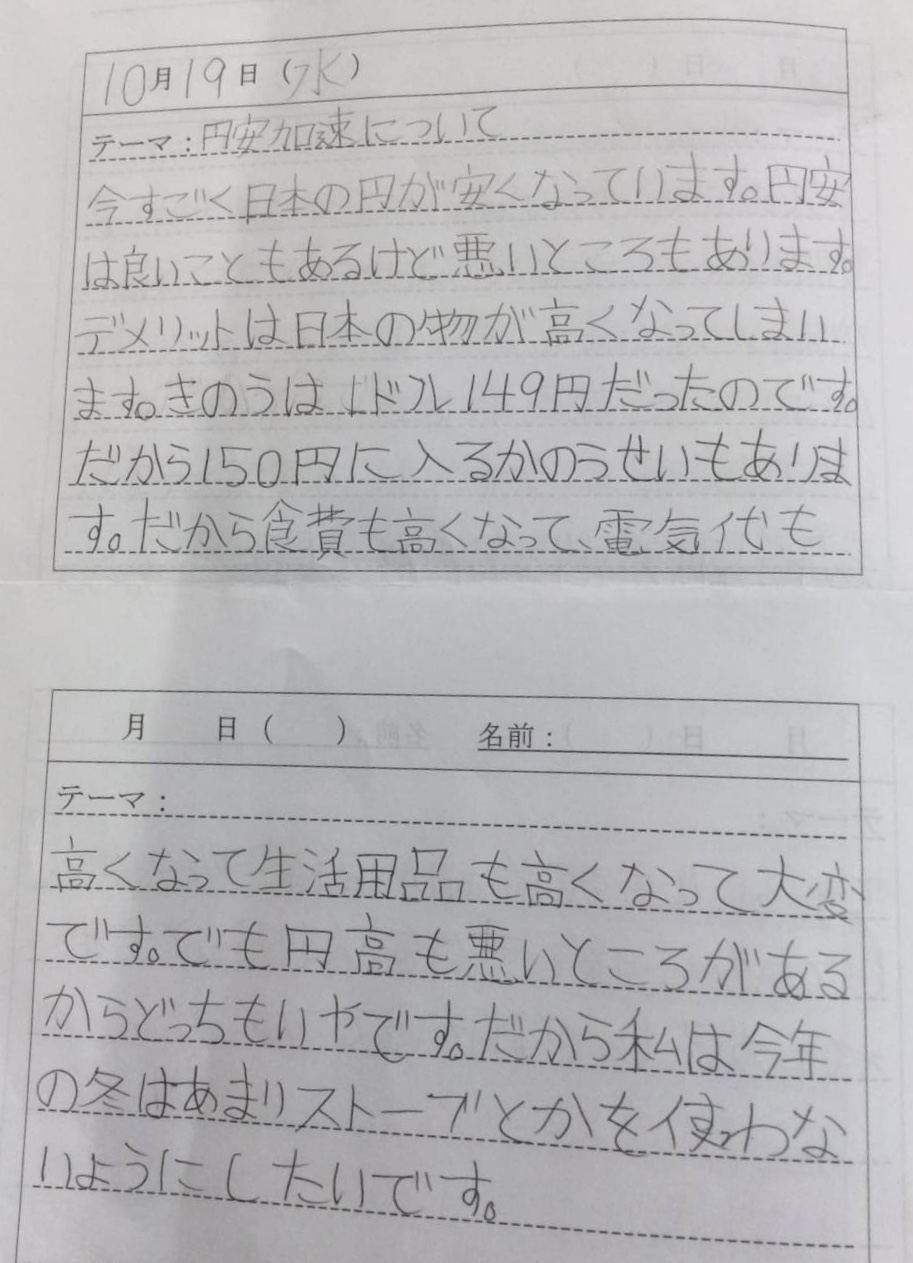 10月19日(水)
テーマ:円安加速について
今すごく日本の円が安くなっています。円安
は良いこともあるけど悪いところもあります。
デメリットは日本の物が高くなってしまい
ます。きのうは1ドル149円だったのです。
だから150円に入るかのうせいもありま
す。だから食費も高くなって、電気代も
月 日( ) 名前:
テーマ:
高くなって生活用品も高くなって大変
です。でも円高も悪いところがある
からどっちもいやです。だから私は今年
の冬はあまりストーブとかを使わな
いようにしたいです。